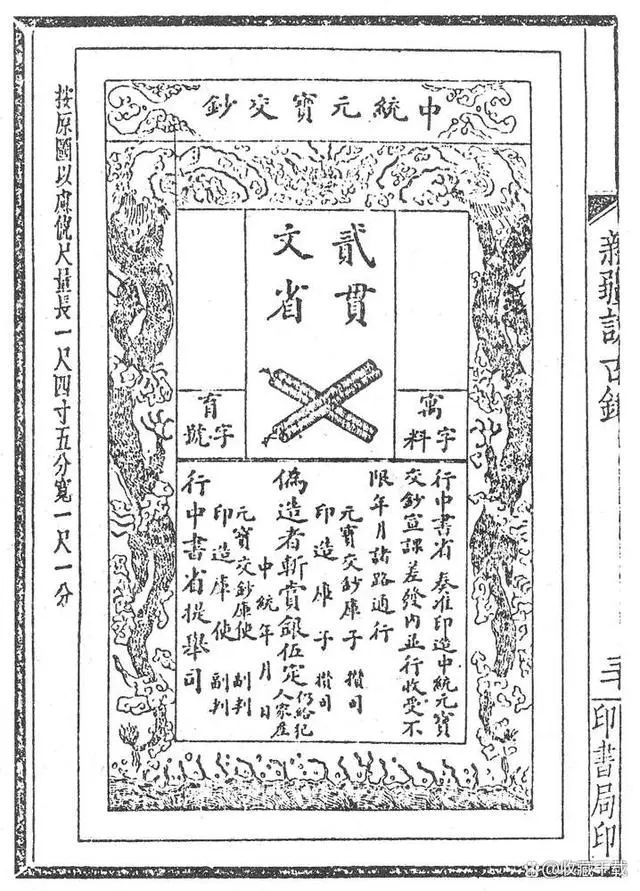 新疆訪古錄
印書局印
中統元寶交鈔
貳貫
文省
字料
字號
行中書省 奏准印造中統元寶
交鈔宣課差發內並行收受不
限年月諸路通行
元寶交鈔庫子 攢司
印造庫子 攢司
偽造者斬賞銀伍定仍給犯人家產
中統年月日
元寶交鈔庫使 副判
印造庫使 副判
行中書省提舉司
按原圖以慮俿尺量長一尺四寸五分寬一尺一分
@收藏千载